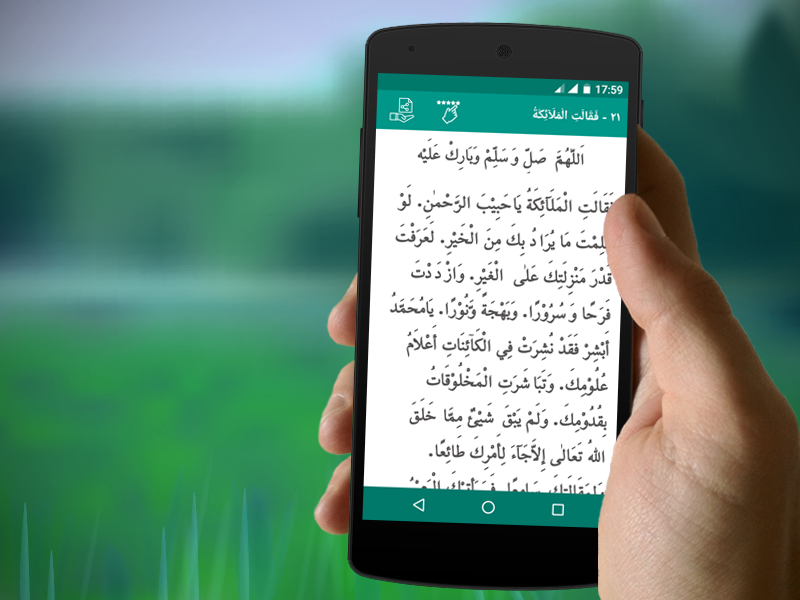 17:59
٢١ - فَقَالَتِ الْمَلَائِكَةُ
اَللّٰهُمَّ صَلِّ وَسَلِّمْ وَبَارِكْ عَلَيْه
فَقَالَتِ الْمَلَآئِكَةُ يَاحَبِيْبَ الرَّحْمٰنِ. لَوْ
مَا يُرَادُ بِكَ مِنَ الْخَيْرِ. لَعَرَفْتَ
قَدْرَ مَنْزِلَتِكَ عَلٰى الْغَيْرِ. وَازْدَدْتَ
فَرَحًا وَسُرُوْرًا. وَبَهْجَةً وَّنُوْرًا. يَامُحَمَّدُ
أَبْشِرْ فَقَدْ نُشِرَتْ فِي الْكَآئِنَاتِ أَعْلَامُ
عُلُوْمِكَ. وَتَبَاشَرَتِ الْمَخْلُوْقَاتُ
بِقُدُوْمِكَ. وَلَمْ يَبْقَ شَيْئٌ مِمَّا خَلَقَ
اللهُ تَعَالٰى إِلاَّجَآءَ لِأَمْرِكَ طَائِعًا.